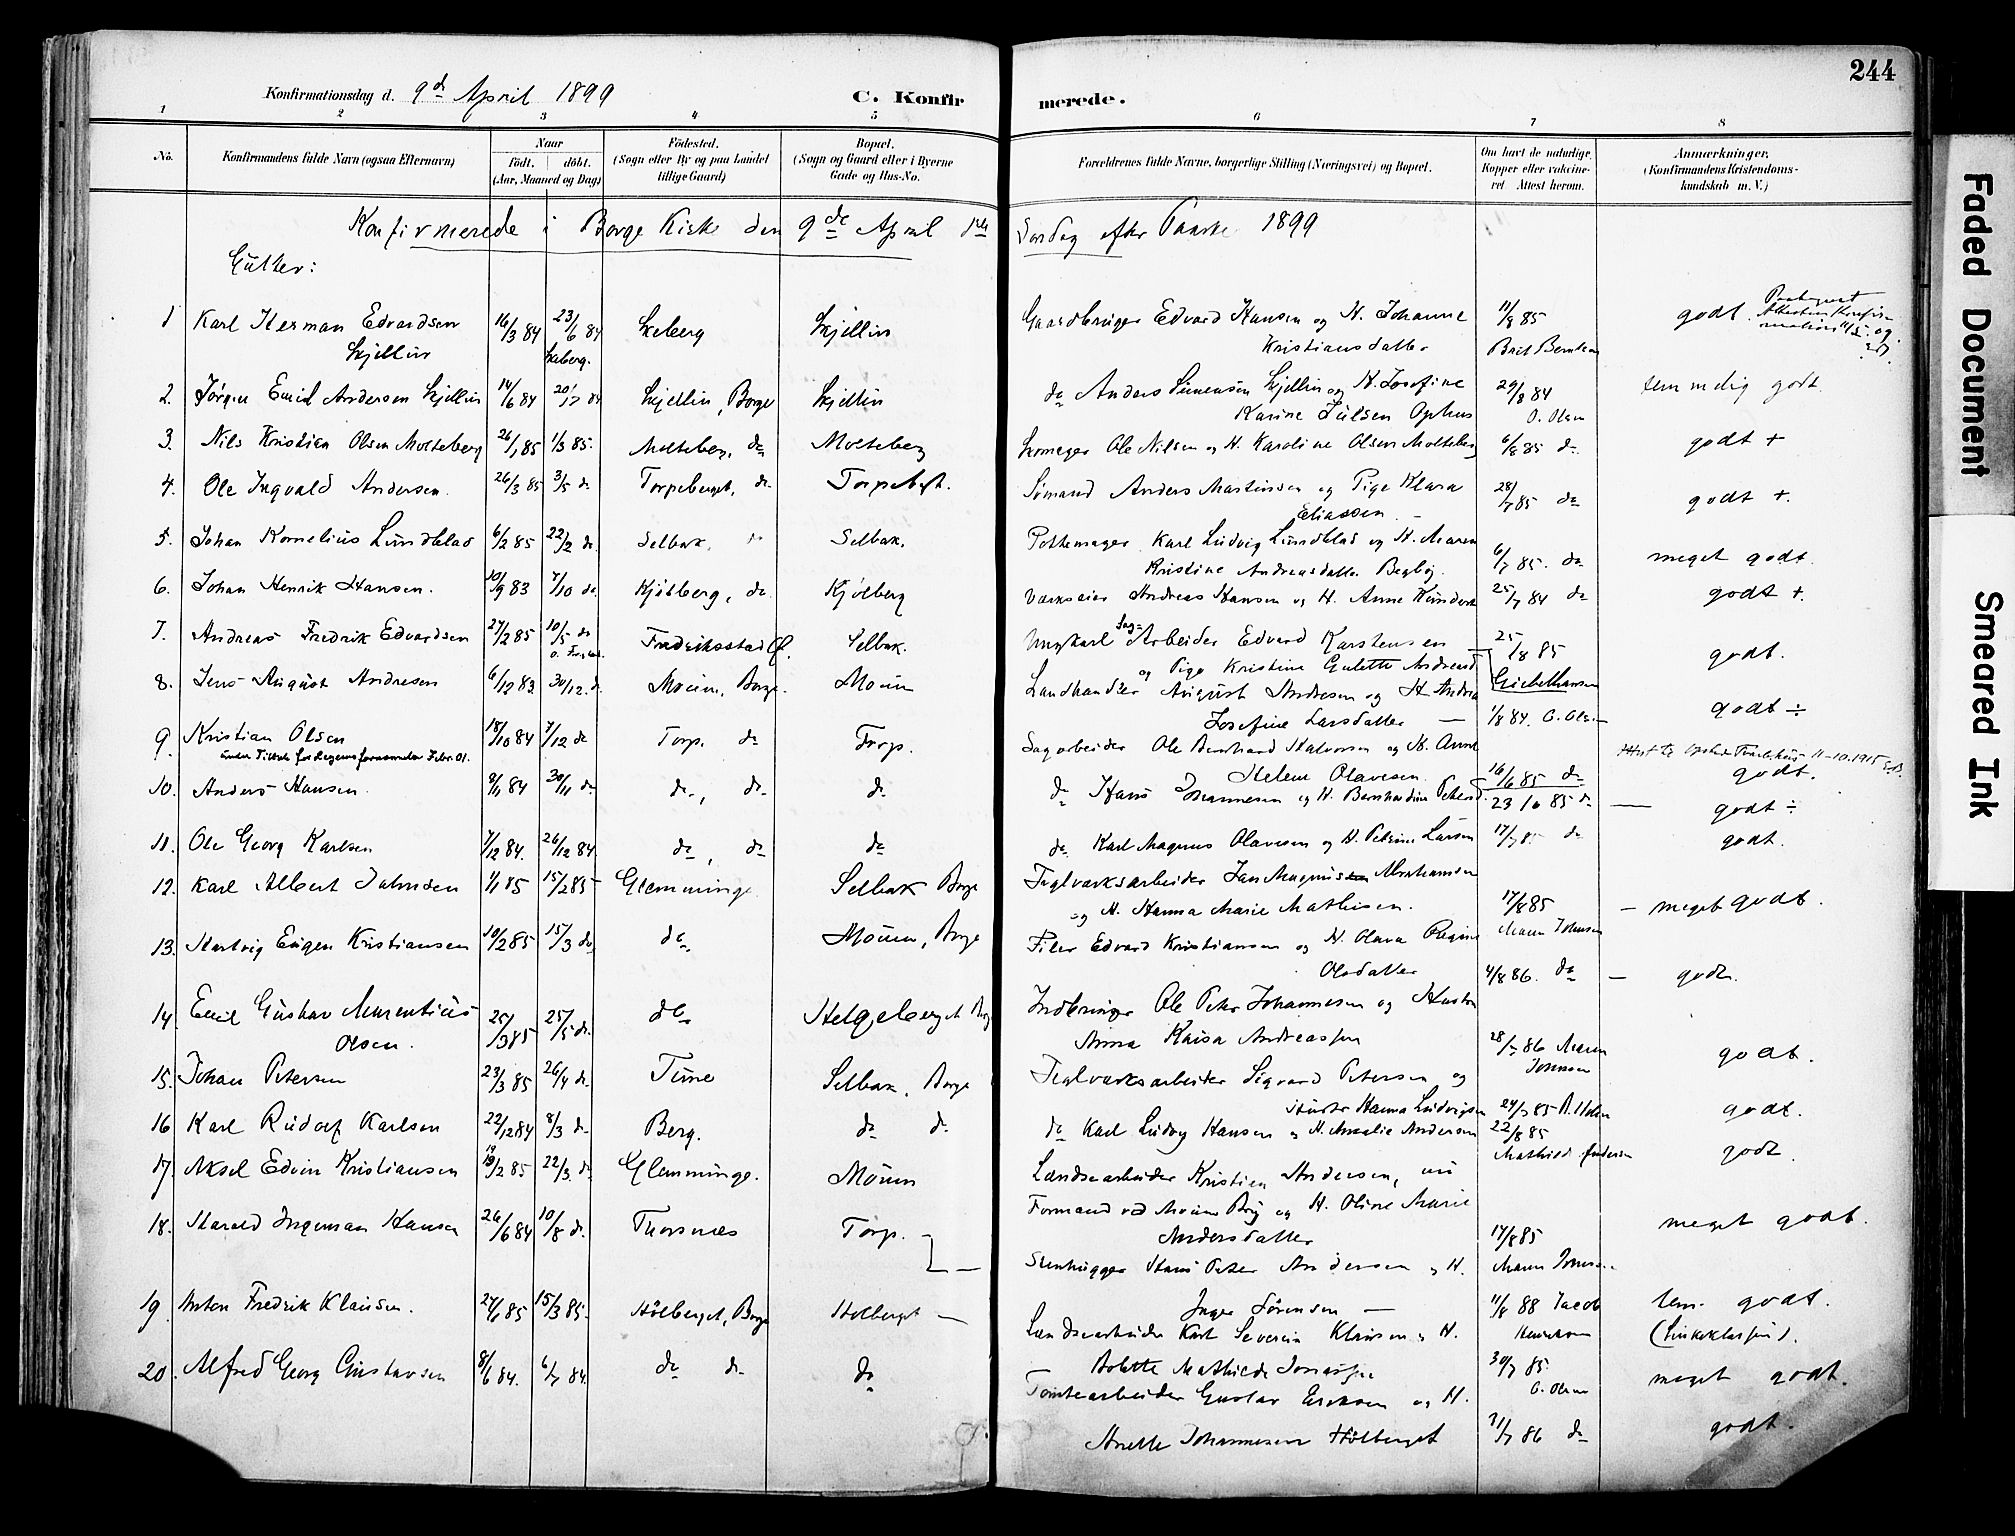 244
Konfirmationsdag d. 9d April 1899 C. Konfir merede.
1 2 3 4 5 6 7 8
No. Konfirmandens fulde Navn (ogsaa Efternavn) Naar født. døbt. (Aar, Maaned og Dag) Fødested. (Sogn eller By og paa Landet tillige Gaard) Bopæl. (Sogn og Gaard eller i Byerne Gade og Hus-No. Forældrenes fulde Navne, borgerlige Stilling (Næringsvei) og Bopæl. Om havt de naturlige Kopper eller vaccineret. Attest herom. Anmærkninger. (Konfirmandens Kristendomskundskab m. V.)
Konfirmerede i Borge Kirke den 9de April 1ste Søndag efter Paaske 1899
Gutter:
1 Karl Herman Edvardsen 16/3 84 23/6 84 Skeberg Skjellin Gaardbruger Edvard Hansen og H. Johanne 11/8 85 godt.
Skjellin Skeberg. Kristiansdatter Berntsen
2. Jørgen Emil Andersen Skjellin 14/6 84 20/7 84 Skjellin, Borge Skjellin do Anders Simensen Skjellin og H. Josefine 29/8 84 temmelig godt
Karine Julsen Ophus O. Olsen
3. Nils Kristian Olsen Molteberg 26/1 85 1/3 85. Molteberg, do Molteberg Skomager Ole Nilsen og H. Karoline Olsen Molteberg 6/8 85 do godt +
4. Ole Ingvald Andersen. 26/3 85 3/5 do Torpeberget, do Torpebgt. Sømand Anders Martinsen og Pige Klara 28/7 85 do godt +.
Eliassen
5. Johan Kornelius Lundblad 6/2 85 22/2 do Selbak. do Selbak. Pottemager Karl Ludvig Lundblad og H. Maren
Kristine Andreasdatter Begby. 6/7 85. do meget godt.
6. Johan Henrik Hansen. 10/9 83 7/10 do. Kjølberg, do Kjølberg Værkseier Andreas Hansen og H. Anne 25/7 84 do godt +.
7. Andreas Fredrik Edvardsen 27/2 85 10/5 do Fredriksstad Selbak. Ungkarl Sag= Arbeider Edvard Karstensen 25/8 85 godt.
og Pige Kristine Gulette Andreasd.
8. Jens August Andresen 6/12 83 30/12 do Moum, Borge. Moum Landhandler August Andresen og H. Andrea
Josefine Larsdatter — 1/8 84. O. Olsen godt ÷
9. Kristian Olsen 18/10 84 7/12 do Torp. do Torp. Sagarbeider Ole Bernhard Halvorsen og H. Anne 11-10.1915
Helene Olavesen. 16/6 85 do godt.
10. Anders Hansen. 8/11 84 30/11 do do, do do do Hans Johannesen og H. Bernhardine Petersd. 23/6 85 do — godt ÷
11. Ole Georg Karlsen 7/12 84. 26/12 84 do, do do do Karl Magnus Olavesen og H. Petrine Larsen 17/7 85 do godt.
12. Karl Albert Johnsen 1/1 85 15/2 85 Glemminge Selbak Borge Teglværksarbeider Jan Magnus Abrahamsen
og H. Hanna Marie Mathisen. 17/8 85 — meget godt.
13. Hartvig Eugen Kristiansen 10/2 85 15/3 do do Moum, Borge Filer Edvard Kristiansen og H. Olava Regine Maren Johnsen
Olsdatter 4/8 86. do — godt.
14. Emil Gustav Laurentius 25/3 85 25/5 do. do Helgeberget Indbringer Ole Peter Johannesen og Hustru
Olsen. Anna Kaisa Andreassen 28/7 86 Maren Johnsen godt.
15. Johan Petersen 23/3 85 26/4 do. Tune Selbak, Borge Teglværksarbeider Sigvard Petersen og
Hustru Hanna Ludvigsen 24/7 85 godt.
16 Karl Rudolf Karlsen 22/12 84 8/3 do Berg. do do do Karl Ludvig Hansen og H. Amalie Andersen 22/8 85
Mathild Andersen godt
17. Aksel Edvin Kristiansen 19/2 85 22/3 do Glemminge. Moum Landsearbeider Kristian Andersen, nu
Formand ved Moum Brug og H. Oline Marie
18. Harald Ingeman Hansen 26/6 84 10/8 do Thorsnæs Torp. Andersdatter 17/8 85 meget godt.
Stenhugger Hans Peter Andersen og H. Maren Johnsen
19. Anton Fredrik Klausen. 15/3 85. Hølberget, Borge Hølberget — Inger Sørensen — 11/8 88 Jacob tem. godt.
Landsearbeider Karl Severin Klausen og H.
— Bolette Mathilde 30/7 85.
20. Alfred Georg Gustavsen 8/6 84. 6/7 84. do do do Tomtearbeider Gustav Eriksen og H. O. Olsen meget godt.
Anette Johannesen Hølberget 31/7 86 do godt.
Faded Document
Smeared Ink